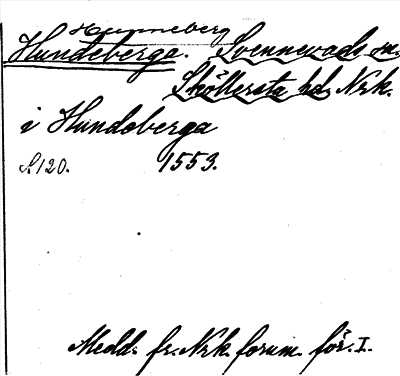 Hunneberg
Hundeberga. Svennevads sn.
Sköllersta hd, Nrk.
i Hundoberga
S. 120. 1553.
Medd. fr. Nrk. fornm. för. I.